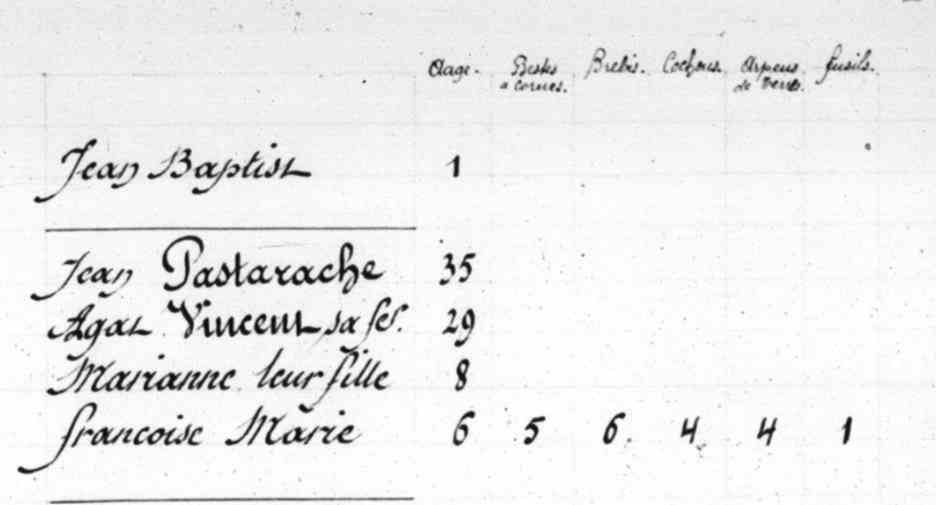 Aage. Bestes a Cornes. Brebis. Cochons. Arpens de Terre. fusils.
Jean Baptist 1
Jean Pastarache 35
Agat Vincent sa fe. 29
Marianne leur fille 8
francoise Marie 6 5 6 4 4 1